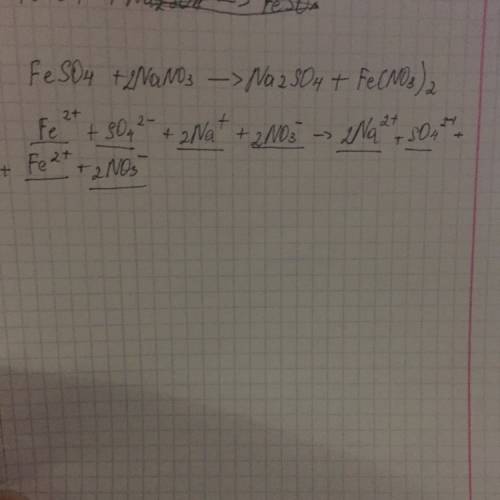 FeSO4 + 2NaNO3 —> Na2SO4 + Fe(NO3)2
Fe²⁺ + SO4²⁻ + 2Na⁺ + 2NO3⁻ —> 2Na²⁺ + SO4²⁻ +
+ Fe²⁺ + 2NO3⁻